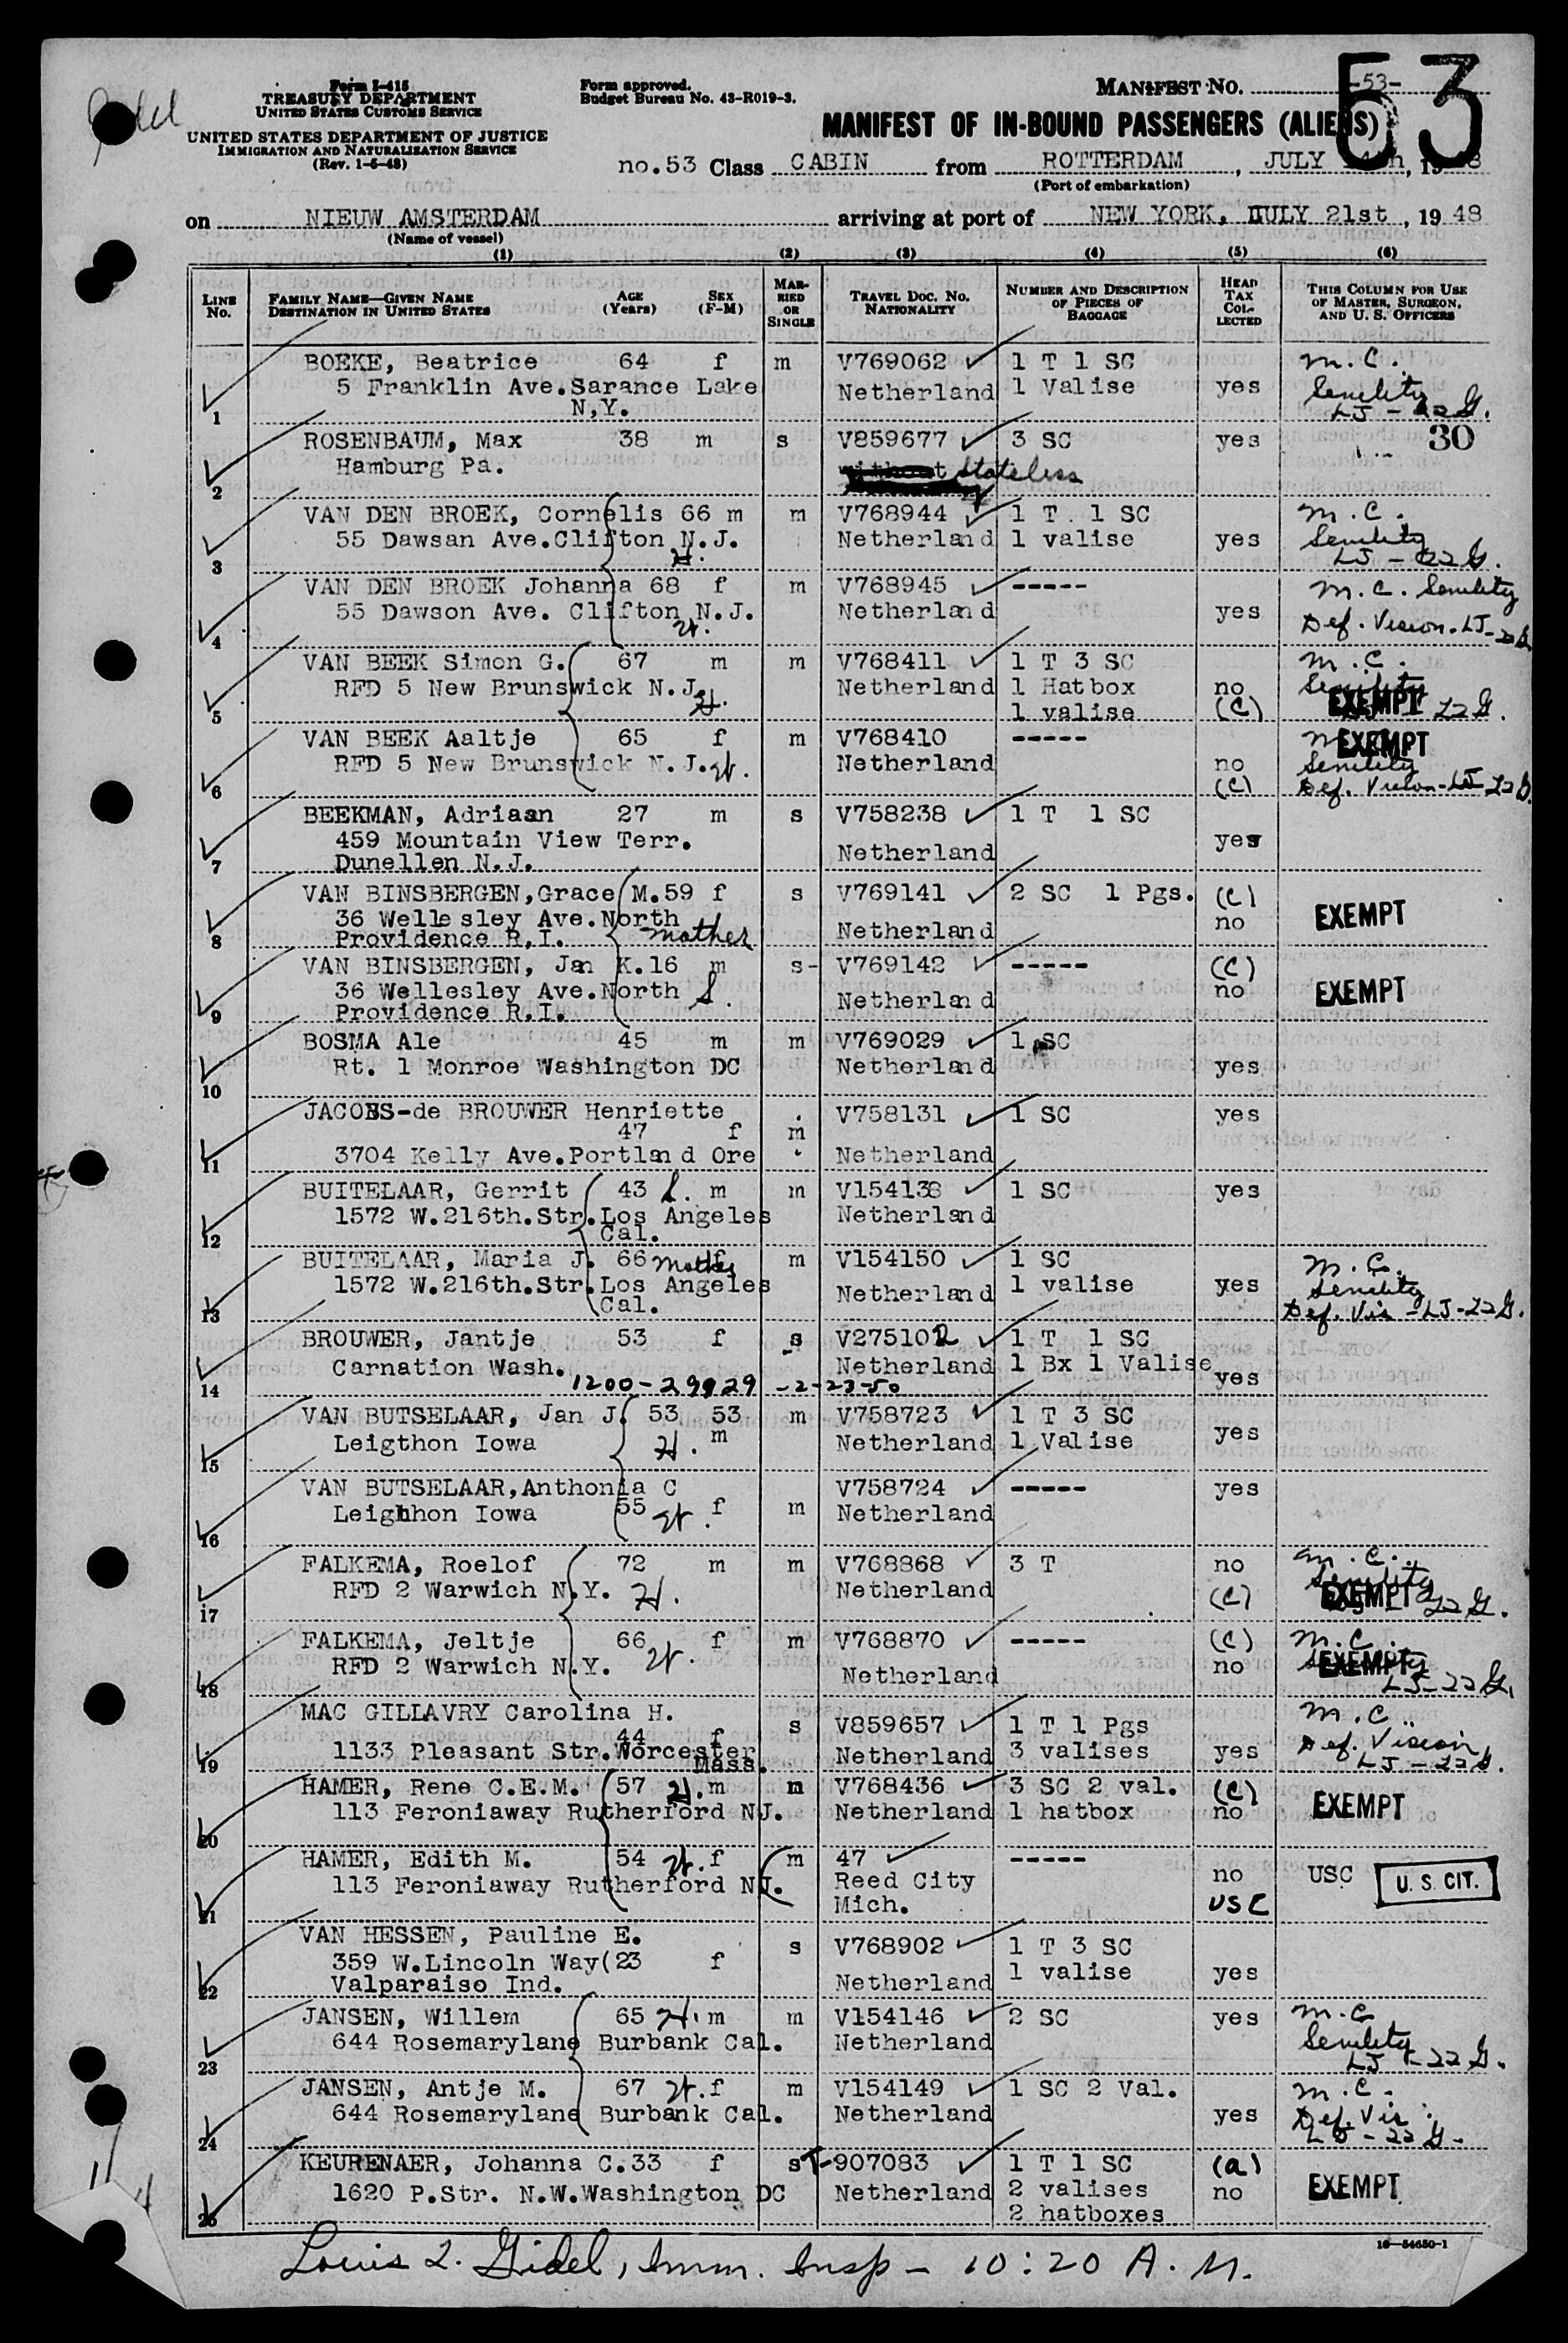 Form I-415
TREASURY DEPARTMENT
UNITED STATES CUSTOMS SERVICE
UNITED STATES DEPARTMENT OF JUSTICE
IMMIGRATION AND NATURALIZATION SERVICE
(Rev. 1-5-48)
Form approved.
Budget Bureau No. 43-R019-3.
MANIFEST NO. -53-
53
MANIFEST OF IN-BOUND PASSENGERS (ALIENS)
no.53 Class CABIN from ROTTERDAM, JULY 14th, 1948
(Port of embarkation)
on NIEUW AMSTERDAM arriving at port of NEW YORK, JULY 21st, 1948
(Name of vessel)
(1) (2) (3) (4) (5) (6)
LINE No.
FAMILY NAME—GIVEN NAME DESTINATION IN UNITED STATES
AGE (Years)
SEX (F-M)
MARRIED OR SINGLE
TRAVEL DOC. NO. NATIONALITY
NUMBER AND DESCRIPTION OF PIECES OF BAGGAGE
HEAD TAX COLLECTED
THIS COLUMN FOR USE OF MASTER, SURGEON, AND U. S. OFFICERS
BOEKE, Beatrice 64 f m V769062 1 T 1 SC M.C.
5 Franklin Ave.Sarance Lake Netherland 1 Valise yes Senility
1 N,Y. LJ - 22 G.
ROSENBAUM, Max 38 m s V859677 3 SC yes 30
Hamburg Pa. Stateless
2
VAN DEN BROEK, Cornelis 66 m m V768944 1 T 1 SC M.C.
55 Dawsan Ave.Clifton N.J. Netherland 1 valise yes Senility
3 H. LJ - 22 G.
VAN DEN BROEK Johanna 68 f m V768945 ----- M.C. Senility
55 Dawson Ave. Clifton N.J. Netherland yes
4 W. Def. Vision. LJ-22 G
VAN BEEK Simon G. 67 m m V768411 1 T 3 SC M.C.
RFD 5 New Brunswick N.J. H. Netherland 1 Hatbox no Senility
5 1 valise (C) EXEMPT 22 G.
VAN BEEK Aaltje 65 f m V768410 ----- EXEMPT
RFD 5 New Brunswick N.J. W. Netherland no Senility
6 (C) Def. Vision-LJ-22 G.
BEEKMAN, Adriaan 27 m s V758238 1 T 1 SC
459 Mountain View Terr. yes
7 Dunellen N.J. Netherland
VAN BINSBERGEN,Grace M.59 f s V769141 2 SC 1 Pgs. (C)
36 Welle sley Ave.North no EXEMPT
8 Providence R.I. Mother Netherland
VAN BINSBERGEN, Jan K.16 m s- V769142 ----- (C)
36 Wellesley Ave.North S. Netherland no EXEMPT
9 Providence R.I.
BOSMA Ale 45 m m V769029 1 SC
Rt. 1 Monroe Washington DC Netherland yes
10
JACOBS-de BROUWER Henriette V758131 1 SC yes
47 f m
11 3704 Kelly Ave.Portland Ore Netherland
BUITELAAR, Gerrit 43 S. m m V154138 1 SC yes
1572 W.216th.Str.Los Angeles Netherland
12 Cal.
BUITELAAR, Maria J. 66 Mother f m V154150 1 SC M.C.
1572 W.216th.Str.Los Angeles Netherland 1 valise yes Senility
13 Cal. Def. Vis - LJ-22 G.
BROUWER, Jantje 53 f s V275102 1 T 1 SC
Carnation Wash. Netherland 1 Bx 1 Valise yes
14 1200-29929 -2-23-50
VAN BUTSELAAR, Jan J. 53 53 m V758723 1 T 3 SC
Leigthon Iowa H. m Netherland 1 Valise yes
15
VAN BUTSELAAR,Anthonia C V758724 ----- yes
Leighhon Iowa 55 W. f m Netherland
16
FALKEMA, Roelof 72 m m V768868 3 T no M.C.
RFD 2 Warwich N.Y. H. Netherland (C) Senility
17 EXEMPT 22 G.
FALKEMA, Jeltje 66 W. f m V768870 ----- (C) M.C.
RFD 2 Warwich N.Y. Netherland no EXEMPT
18 LJ-22 G.
MAC GILLAVRY Carolina H. M.C.
44 f s V859657 1 T 1 Pgs Def. Vision
19 1133 Pleasant Str.Worcester Mass. Netherland 3 valises yes LJ-22 G.
HAMER, Rene C.E.M. 57 H. m m V768436 3 SC 2 val. (C)
113 Feroniaway Rutherford NJ. Netherland 1 hatbox no EXEMPT
20
HAMER, Edith M. 54 W. f m 47 -----
113 Feroniaway Rutherford NJ. Reed City no USC U. S. CIT.
21 Mich. USC
VAN HESSEN, Pauline E. s V768902 1 T 3 SC
359 W.Lincoln Way(23 f 1 valise yes
22 Valparaiso Ind. Netherland
JANSEN, Willem 65 H. m m V154146 2 SC yes M.C
644 Rosemarylane Burbank Cal. Netherland Senility
23 LJ - 22 G.
JANSEN, Antje M. 67 W. f m V154149 1 SC 2 Val. M.C.
644 Rosemarylane Burbank Cal. Netherland yes Def. Vis.
24 LJ - 22 G-
KEURENAER, Johanna C.33 f s T-907083 1 T 1 SC (a)
1620 P.Str. N.W.Washington DC Netherland 2 valises no EXEMPT
25 2 hatboxes
16—54650-1
Louis L. Gidel, Imm. Insp - 10:20 A.M.